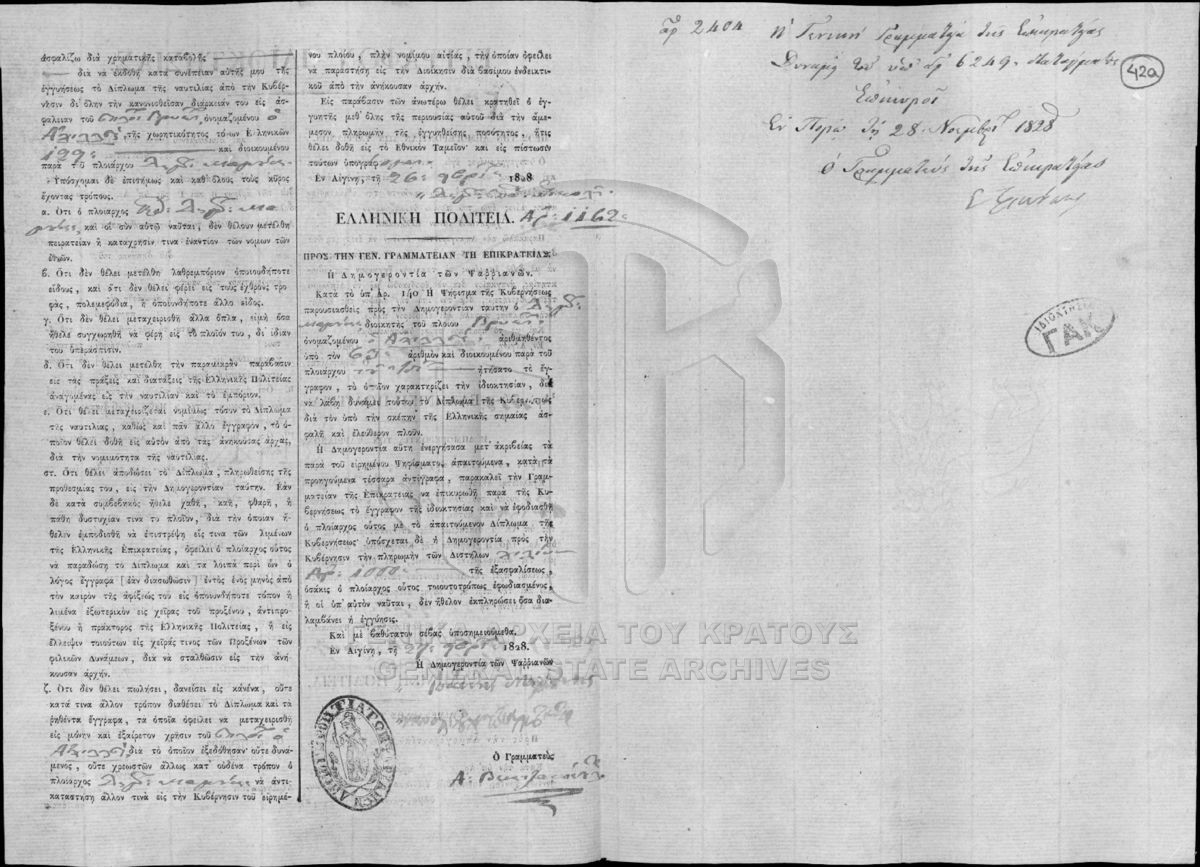 ἀσφαλίζω διὰ χρηματικῆς καταβολῆς
διὰ νὰ ἐκδοθῇ κατὰ συνέπειαν αὐτῆς μου τῆς
ἐγγυήσεως τὸ Δίπλωμα τῆς ναυτιλίας ἀπὸ τὴν Κυβέρ-
νησιν δι' ὅλην τὴν κανονισθεῖσαν διάρκειάν του, εἰς ἀσ-
φάλειαν τοῦ ὀνομαζομένου ὁ
Ἀχιλλεὺς τῆς χωρητικότητος τόνων Ἑλληνικῶν
122: καὶ διοικουμένου
παρὰ τοῦ πλοιάρχου
Ὑπόσχομαι δὲ ἐπισήμως καὶ καθ' ὅλους τοὺς κῦρος
ἔχοντας τρόπους.
α. Ὅτι ὁ πλοίαρχος
καὶ οἱ σὺν αὐτῷ ναῦται, δὲν θέλουν μετέλθῃ
πειρατείαν ἢ κατάχρησίν τινα ἐναντίον τῶν νόμων τῶν
ἐθνῶν.
β. Ὅτι δὲν θέλει μετέλθῃ λαθρεμπόριον ὁποιουδήποτε
εἴδους, καὶ ὅτι δὲν θέλει φέρει εἰς τοὺς ἐχθροὺς τρο-
φὰς, πολεμεφόδια, ἢ ὁποιονδήποτε ἄλλο εἶδος.
γ. Ὅτι δὲν θέλει μεταχειρισθῇ ἄλλα ὅπλα, εἰμὴ ὅσα
ἤθελε συγχωρηθῇ νὰ φέρῃ εἰς τὸ πλοῖόν του, δι' ἰδίαν
του ὑπεράσπισιν.
δ. Ὅτι δὲν θέλει μετέλθῃ τὴν παραμικρὰν παράβασιν
εἰς τὰς πράξεις καὶ διατάξεις τῆς Ἑλληνικῆς Πολιτείας
ἀναγομένας εἰς τὴν ναυτιλίαν καὶ τὸ ἐμπόριον.
ε. Ὅτι θέλει μεταχειρίζεται νομίμως τόσον τὸ Δίπλωμα
τῆς ναυτιλίας, καθὼς καὶ πᾶν ἄλλο ἔγγραφον, τὸ ὁ-
ποῖον θέλει δοθῇ εἰς αὐτὸν ἀπὸ τὰς ἀνηκούσας ἀρχὰς,
διὰ τὴν νομιμότητα τῆς ναυτιλίας.
στ. Ὅτι θέλει ἀποδώσει τὸ Δίπλωμα, πληρωθείσης τῆς
προθεσμίας του, εἰς τὴν Δημογεροντίαν ταύτην. Ἐὰν
δὲ κατὰ συμβεβηκὸς ἤθελε χαθῇ, καῇ, φθαρῇ ἢ
πάθῃ δυστυχίαν τινὰ τὸ πλοῖον, διὰ τὴν ὁποίαν ἤ-
θελεν ἐμποδισθῇ νὰ ἐπιστρέψῃ εἴς τινα τῶν λιμένων
τῆς Ἑλληνικῆς Ἐπικρατείας, ὀφείλει ὁ πλοίαρχος οὗτος
νὰ παραδώσῃ τὸ Δίπλωμα καὶ τὰ λοιπὰ περὶ ὧν ὁ
λόγος ἔγγραφα [ἐὰν διασωθῶσιν] ἐντὸς ἑνὸς μηνὸς ἀπὸ
τὸν καιρὸν τῆς ἀφίξεώς του εἰς ὁποιονδήποτε τόπον ἢ
λιμένα ἐξωτερικὸν εἰς χεῖρας τοῦ προξένου, ἀντιπρο-
ξένου ἢ πράκτορος τῆς Ἑλληνικῆς Πολιτείας, ἢ εἰς
ἔλλειψιν τοιούτου εἰς χεῖράς τινος τῶν Προξένων τῶν
φιλικῶν Δυνάμεων, διὰ νὰ σταλθῶσιν εἰς τὴν ἀνή-
κουσαν ἀρχήν.
ζ. Ὅτι δὲν θέλει πωλήσει, δανείσει εἰς κᾀνένα, οὔτε
κατά τινα ἄλλον τρόπον διαθέσει τὸ Δίπλωμα καὶ τὰ
ῥηθέντα ἔγγραφα, τὰ ὁποῖα ὀφείλει νὰ μεταχειρισθῇ
εἰς μόνην καὶ ἐξαίρετον χρῆσιν τοῦ ὁ
Ἀχιλλεὺς διὰ τὸ ὁποῖον ἐξεδόθησαν· οὔτε δυνά-
μενος, οὔτε χρεωστῶν ἄλλως κατ' οὐδένα τρόπον ὁ
πλοίαρχος νὰ ἀντι-
καταστήσῃ ἄλλον τινὰ εἰς τὴν Κυβέρνησιν τοῦ εἰρημέ-
νου πλοίου, πλὴν νομίμου αἰτίας, τὴν ὁποίαν ὀφείλει
νὰ παραστήσῃ εἰς τὴν Διοίκησιν διὰ βασίμου ἐνδεικτι-
κοῦ ἀπὸ τὴν ἀνήκουσαν ἀρχήν.
Εἰς παράβασιν τῶν ἀνωτέρω θέλει κρατηθεῖ ὁ ἐγ-
γυητὴς μὲ τῆς περιουσίας αὐτοῦ διὰ τὴν ἄμε-
σον πληρωμὴν τῆς ἐγγυηθείσης ποσότητος, ἥτις
θέλει δοθῇ εἰς τὸ Ἐθνικὸν Ταμεῖον· καὶ εἰς πίστωσιν
τούτων ὑπογράφομαι.
Ἐν Αἰγίνῃ, τῇ 26: 1828
ΕΛΛΗΝΙΚΗ ΠΟΛΙΤΕΙΑ. Ἀρ: 1162:
ΠΡΟΣ ΤΗΝ ΓΕΝ. ΓΡΑΜΜΑΤΕΙΑΝ ΤΗΣ ΕΠΙΚΡΑΤΕΙΑΣ
Ἡ Δημογεροντία τῶν Ψαῤῥιανῶν.
Κατὰ τὸ ὑπ' Ἀρ. 140 Ψήφισμα τῆς Κυβερνήσεως
παρουσιασθεὶς πρὸς τὴν Δημογεροντίαν ταύτην ὁ
διοικητὴς τοῦ πλοίου
ὀνομαζομένου ὁ Ἀχιλλεὺς ἀριθμηθέντος
ὑπὸ τὸν ἀριθμὸν καὶ διοικουμένου παρὰ τοῦ
πλοιάρχου ἐζήτησατο τὸ ἔγ-
γραφον, τὸ ὁποῖον χαρακτηρίζει τὴν ἰδιοκτησίαν, διὰ
νὰ λάβῃ δυνάμει τούτου τὸ Δίπλωμα τῆς Κυβερνήσεως
διὰ τὸν ὑπὸ τὴν σκέπην τῆς Ἑλληνικῆς σημαίας ἀσ-
φαλῆ καὶ ἐλεύθερον πλοῦν.
Ἡ Δημογεροντία αὕτη ἐνεργήσασα μετ' ἀκριβείας τὰ
παρὰ τοῦ εἰρημένου Ψηφίσματος ἀπαιτούμενα, κατὰ τὰ
προηγούμενα τέσσαρα ἀντίγραφα, παρακαλεῖ τὴν Γραμ-
ματείαν τῆς Ἐπικρατείας νὰ ἐπικυρωθῇ παρὰ τῆς Κυ-
βερνήσεως τὸ ἔγγραφον τῆς ἰδιοκτησίας καὶ νὰ ἐφοδιασθῇ
ὁ πλοίαρχος οὗτος μὲ τὸ ἀπαιτούμενον Δίπλωμα τῆς
Κυβερνήσεως· ὑπόσχεται δὲ ἡ Δημογεροντία πρὸς τὴν
Κυβέρνησιν τὴν πληρωμὴν τῶν Διστήλων χιλίων
Ἀρ: 1000: τῆς ἐξασφαλίσεως,
ὁσάκις ὁ πλοίαρχος οὗτος τοιουτοτρόπως ἐφωδιασμένος,
ἢ οἱ ὑπ' αὐτὸν ναῦται, δὲν ἤθελον ἐκπληρώσει ὅσα δια-
λαμβάνει ἡ ἐγγύησις.
Καὶ μὲ βαθύτατον σέβας ὑποσημειούμεθα.
Ἐν Αἰγίνῃ, τῇ 27: 1828.
Ἡ Δημογεροντία τῶν Ψαῤῥιανῶν
Ὁ Γραμματεὺς
ἀρ 2404 Ἡ Γενικὴ Γραμματεία τῆς Ἐπικρατείας
Δυνάμει τοῦ ὑπ' ἀρ 6249 διατάγματος
Ἐπικυροῖ
Ἐν Πόρῳ τῇ 28 Νοεμβρ 1828
Ὁ Γραμματεὺς τῆς Ἐπικρατείας
42α
ΙΔΙΟΚΤΗΣΙΑ
ΓΑΚ
ΓΕΝΙΚΑ ΑΡΧΕΙΑ ΤΟΥ ΚΡΑΤΟΥΣ
GENERAL STATE ARCHIVES